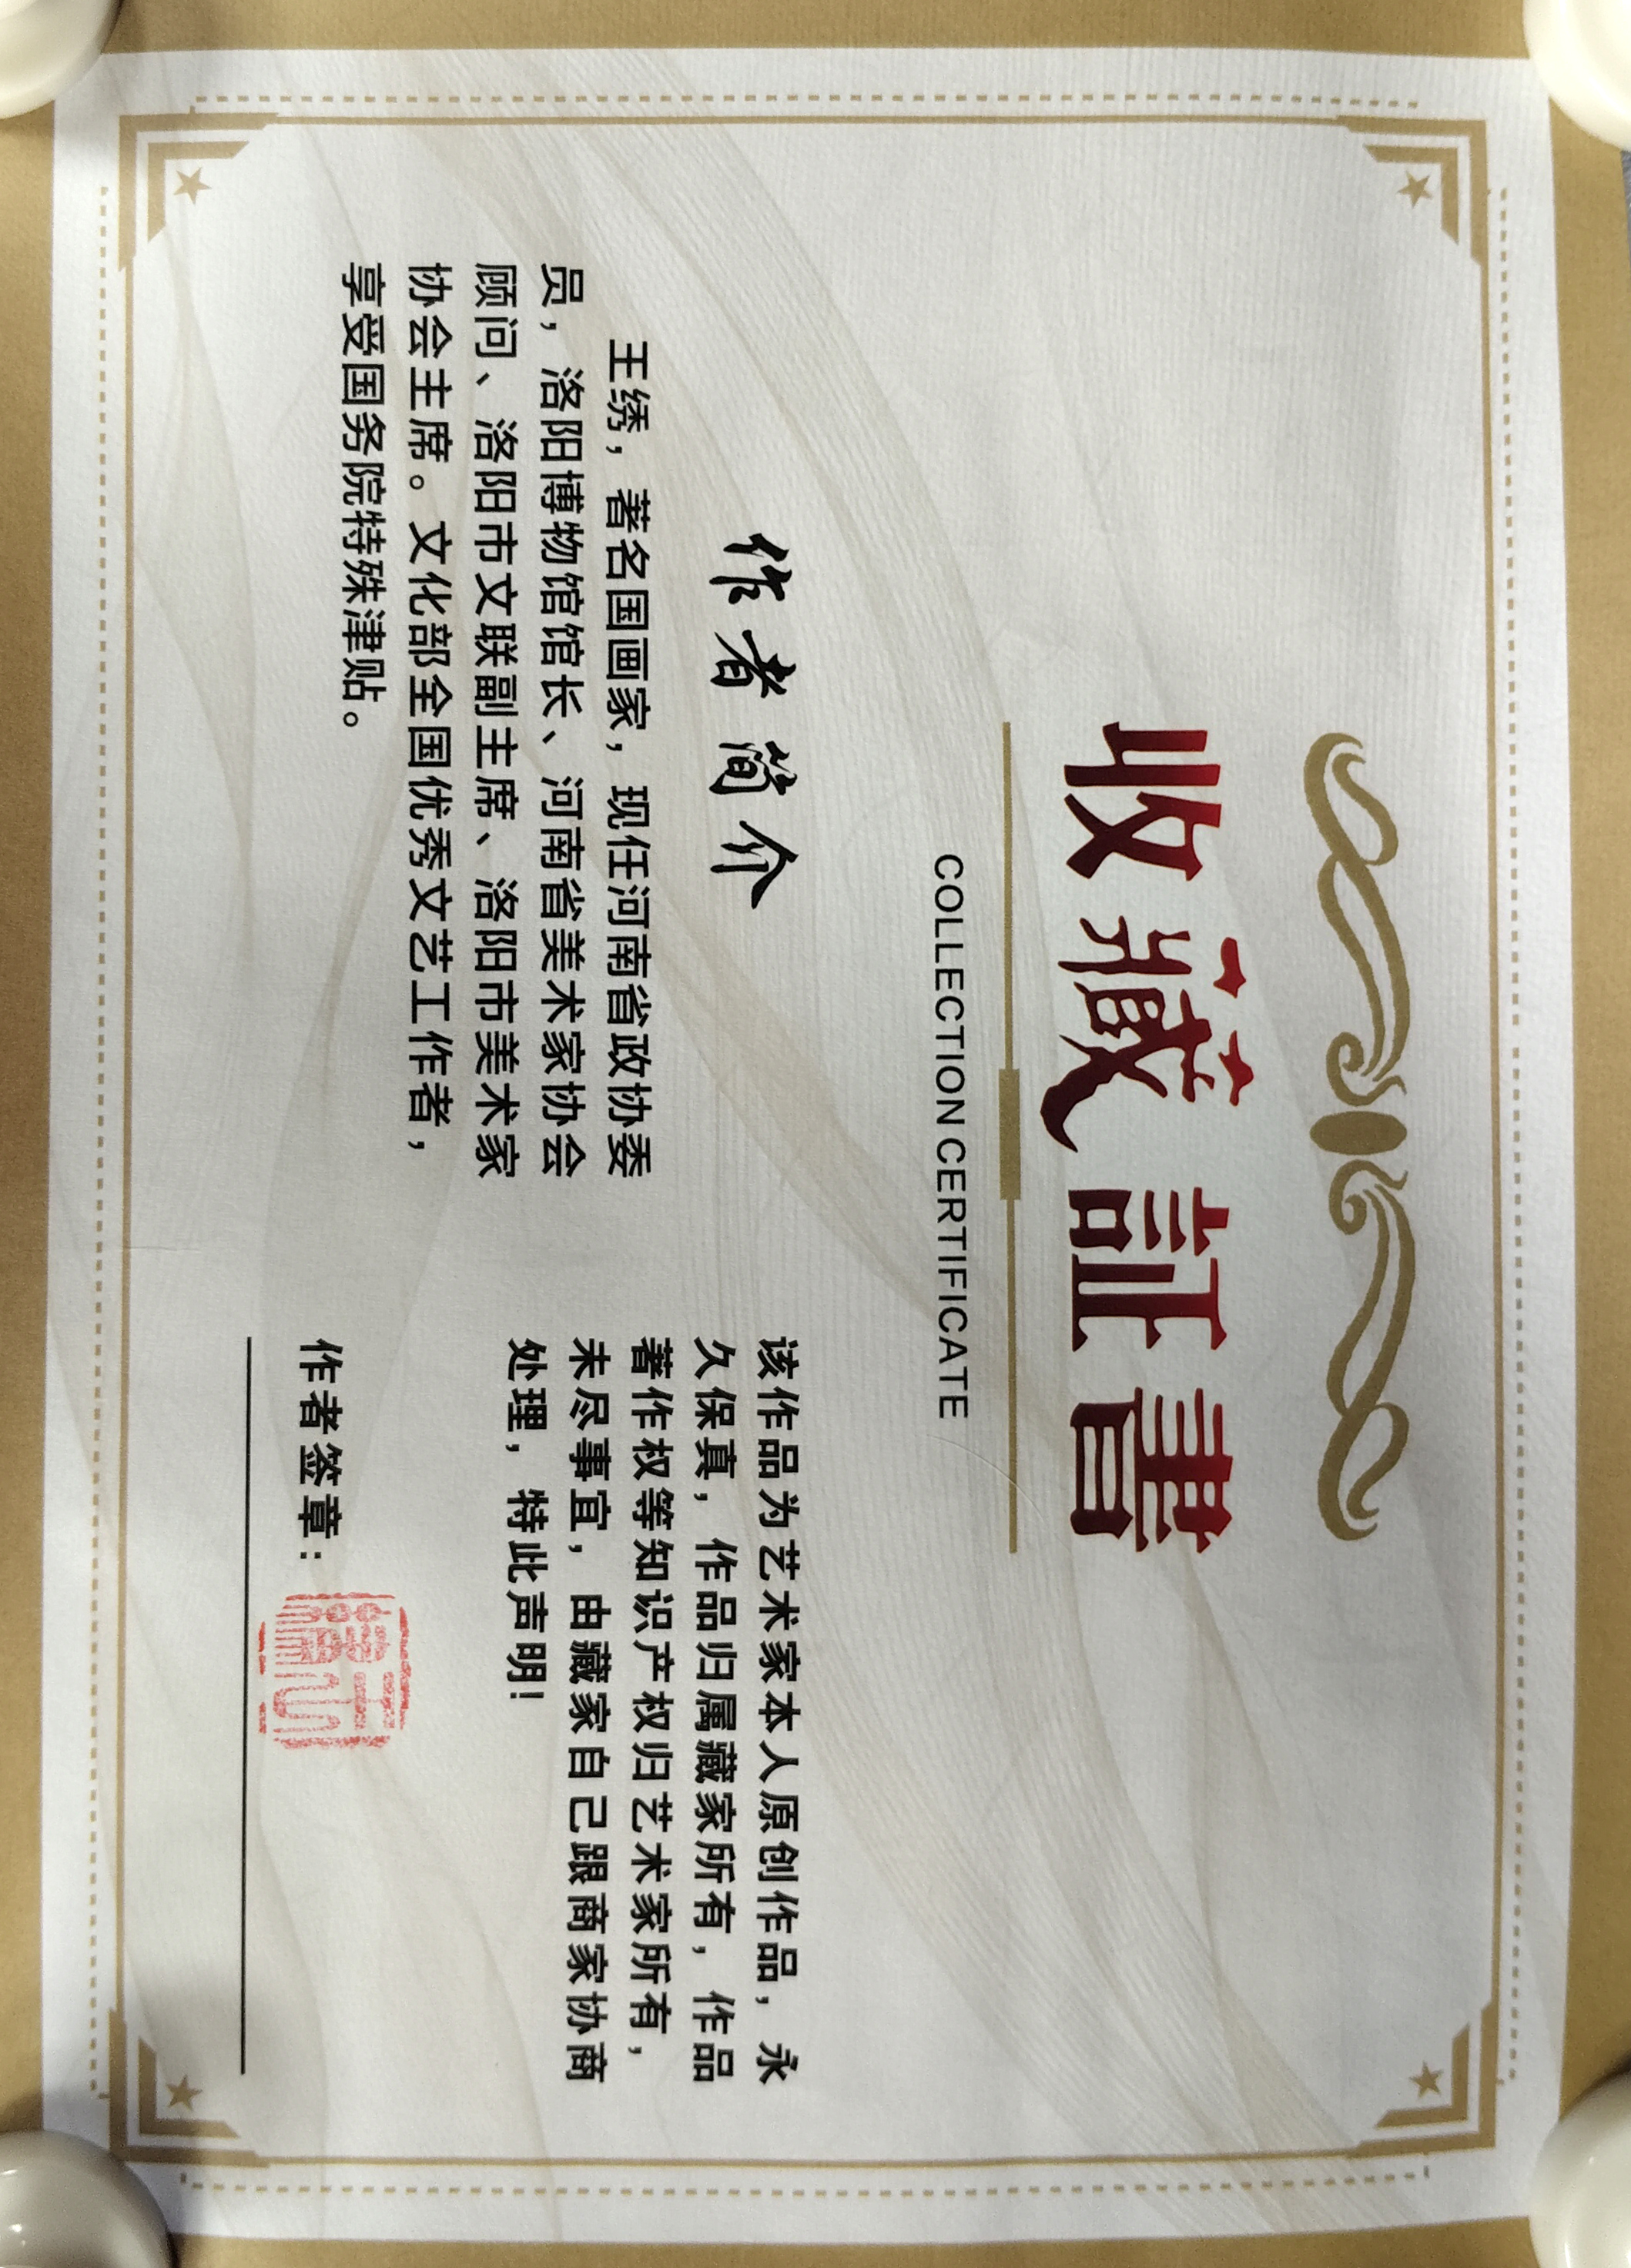 收藏証書
COLLECTION CERTIFICATE
作者简介
王绣，著名国画家，现任河南省政协委
员，洛阳博物馆馆长、河南省美术家协会
顾问、洛阳市文联副主席、洛阳市美术家
协会主席。文化部全国优秀文艺工作者，
享受国务院特殊津贴。
该作品为艺术家本人原创作品，永
久保真，作品归属藏家所有，作品
著作权等知识产权归艺术家所有，
未尽事宜，由藏家自己跟商家协商
处理，特此声明!
作者签章：